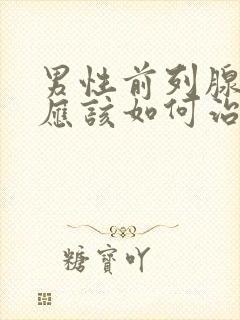 男性前列腺
應該如何治
糖寶吖